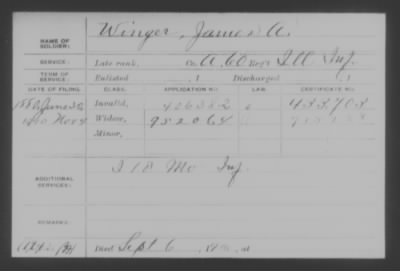 NAME OF SOLDIER: Winger, James A.
SERVICE: Late rank, Co. A, 60 Reg't Ill Inf.
TERM OF SERVICE: Enlisted , 1 Discharged , 1
DATE OF FILING. CLASS. APPLICATION NO. LAW. CERTIFICATE NO.
June 30 Invalid, 406382 433703
Nov 4 Widow, 952064
Minor,
ADDITIONAL SERVICES: I 18 Mo Inf.
REMARKS:
Died Sept 6 , at